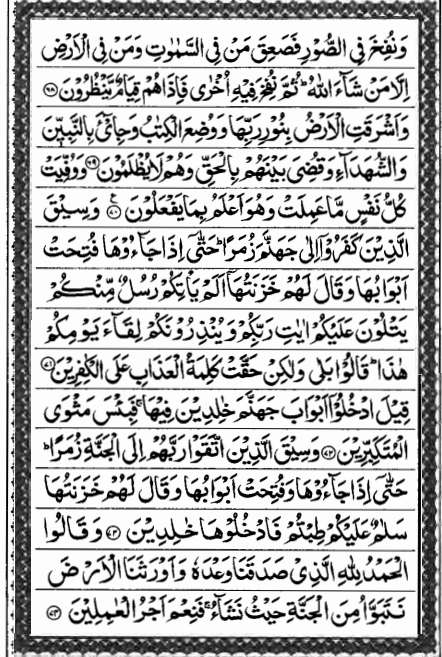 وَنُفِخَ فِي الصُّوْرِ فَصَعِقَ مَنْ فِي السَّمٰوٰتِ وَمَنْ فِي الْاَرْضِ
اِلَّا مَنْ شَآءَ اللّٰهُ ؕ ثُمَّ نُفِخَ فِيْهِ اُخْرٰى فَاِذَا هُمْ قِيَامٌ يَّنْظُرُوْنَ ﴿۶۸﴾
وَاَشْرَقَتِ الْاَرْضُ بِنُوْرِ رَبِّهَا وَوُضِعَ الْكِتٰبُ وَجِايْٓءَ بِالنَّبِيّٖنَ
وَالشُّهَدَآءِ وَقُضِيَ بَيْنَهُمْ بِالْحَقِّ وَهُمْ لَا يُظْلَمُوْنَ ﴿۶۹﴾ وَوُفِّيَتْ
كُلُّ نَفْسٍ مَّا عَمِلَتْ وَهُوَ اَعْلَمُ بِمَا يَفْعَلُوْنَ ﴿۷۰﴾ ع وَسِيْقَ
الَّذِيْنَ كَفَرُوْٓا اِلٰى جَهَنَّمَ زُمَرًا ؕ حَتّٰٓى اِذَا جَآءُوْهَا فُتِحَتْ
اَبْوَابُهَا وَقَالَ لَهُمْ خَزَنَتُهَآ اَلَمْ يَاْتِكُمْ رُسُلٌ مِّنْكُمْ
يَتْلُوْنَ عَلَيْكُمْ اٰيٰتِ رَبِّكُمْ وَيُنْذِرُوْنَكُمْ لِقَآءَ يَوْمِكُمْ
هٰذَا ؕ قَالُوْا بَلٰى وَلٰكِنْ حَقَّتْ كَلِمَةُ الْعَذَابِ عَلَى الْكٰفِرِيْنَ ﴿۷۱﴾
قِيْلَ ادْخُلُوْٓا اَبْوَابَ جَهَنَّمَ خٰلِدِيْنَ فِيْهَا ۚ فَبِئْسَ مَثْوَى
الْمُتَكَبِّرِيْنَ ﴿۷۲﴾ وَسِيْقَ الَّذِيْنَ اتَّقَوْا رَبَّهُمْ اِلَى الْجَنَّةِ زُمَرًا ؕ
حَتّٰٓى اِذَا جَآءُوْهَا وَفُتِحَتْ اَبْوَابُهَا وَقَالَ لَهُمْ خَزَنَتُهَا
سَلٰمٌ عَلَيْكُمْ طِبْتُمْ فَادْخُلُوْهَا خٰلِدِيْنَ ﴿۷۳﴾ وَقَالُوا
الْحَمْدُ لِلّٰهِ الَّذِيْ صَدَقَنَا وَعْدَهٗ وَاَوْرَثَنَا الْاَرْضَ
نَتَبَوَّاُ مِنَ الْجَنَّةِ حَيْثُ نَشَآءُ ۚ فَنِعْمَ اَجْرُ الْعٰمِلِيْنَ ﴿۷۴﴾